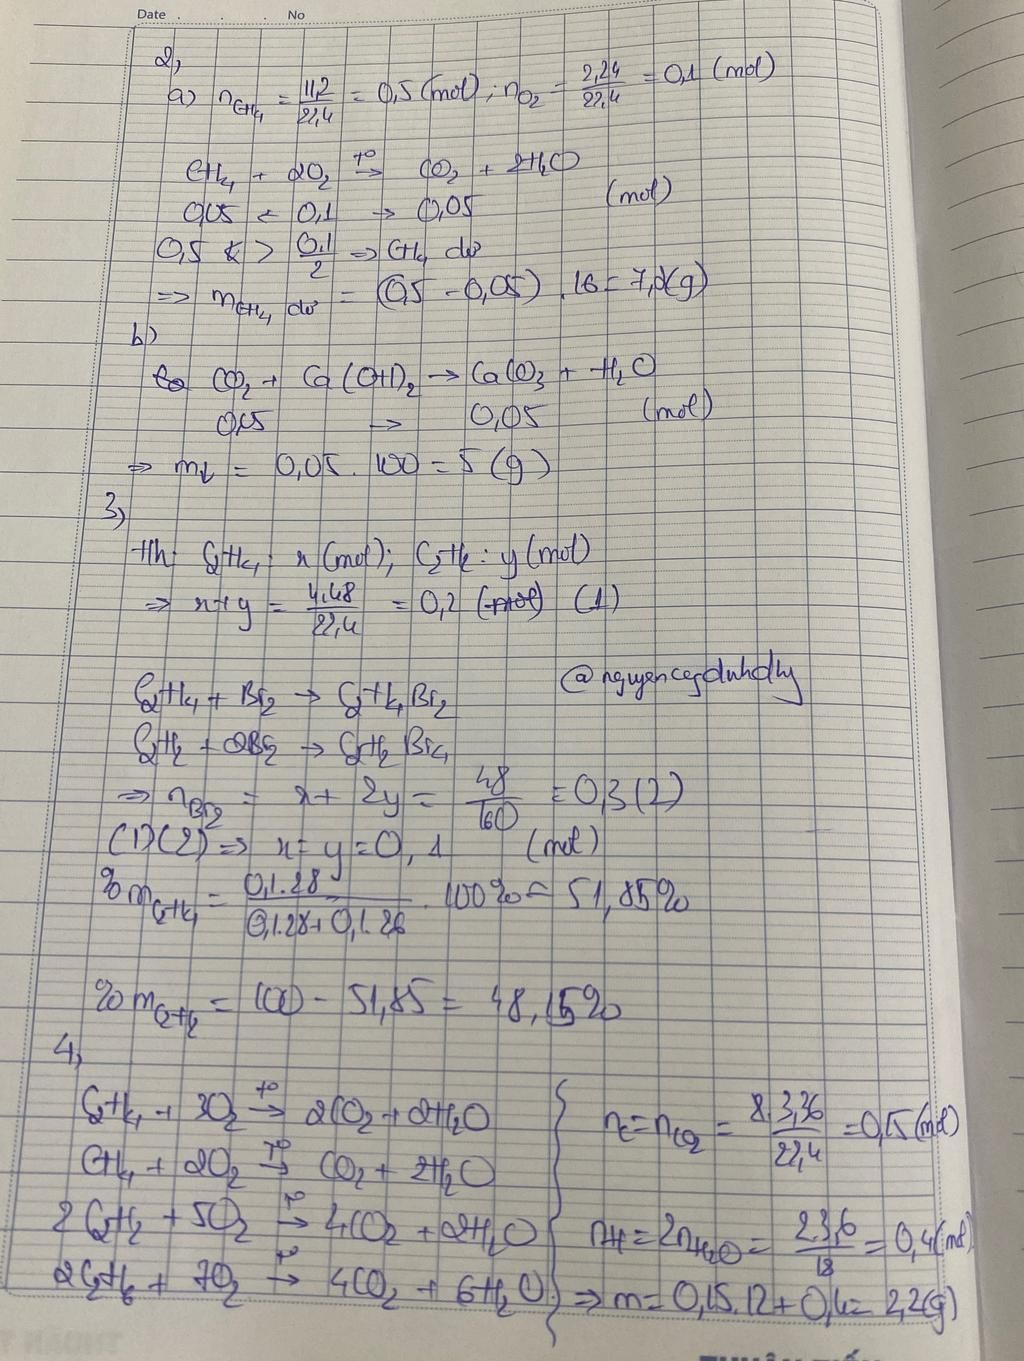 Date . . . . No
2,
a) nCH₄ = 11,2/22,4 = 0,5 (mol) ; nO₂ = 2,24/22,4 = 0,1 (mol)
CH₄ + 2O₂ →(t°) CO₂ + 2H₂O
0,05 ← 0,1 → 0,05 (mol)
0,5 > 0,1/2 ⇒ CH₄ dư
⇒ mCH₄ dư = (0,5 - 0,05) . 16 = 7,2(g)
b)
CO₂ + Ca(OH)₂ → CaCO₃ + H₂O
0,05 → 0,05 (mol)
⇒ m↓ = 0,05 . 100 = 5 (g)
3,
hh: C₂H₄ : x (mol); C₂H₂ : y (mol)
⇒ x+y = 4,48/22,4 = 0,2 (mol) (1)
@nguyencgdnhdhy
C₂H₄ + Br₂ → C₂H₄Br₂
C₂H₂ + 2Br₂ → C₂H₂Br₄
⇒ nBr₂ = x + 2y = 48/160 = 0,3 (2)
(1)(2) ⇒ x = y = 0,1 (mol)
%mC₂H₄ = 0,1.28/0,1.28+0,1.26 . 100% = 51,85%
%mC₂H₂ = 100 - 51,85 = 48,15%
4,
C₂H₄ + 3O₂ →(t°) 2CO₂ + 2H₂O
CH₄ + 2O₂ →(t°) CO₂ + 2H₂O
2C₂H₂ + 5O₂ →(t°) 4CO₂ + 2H₂O
2C₂H₆ + 7O₂ →(t°) 4CO₂ + 6H₂O
nC = nCO₂ = 3,36/22,4 = 0,15 (mol)
nH = 2nH₂O = 2.3,6/18 = 0,4 (mol)
⇒ m = 0,15.12 + 0,4 = 2,2(g)